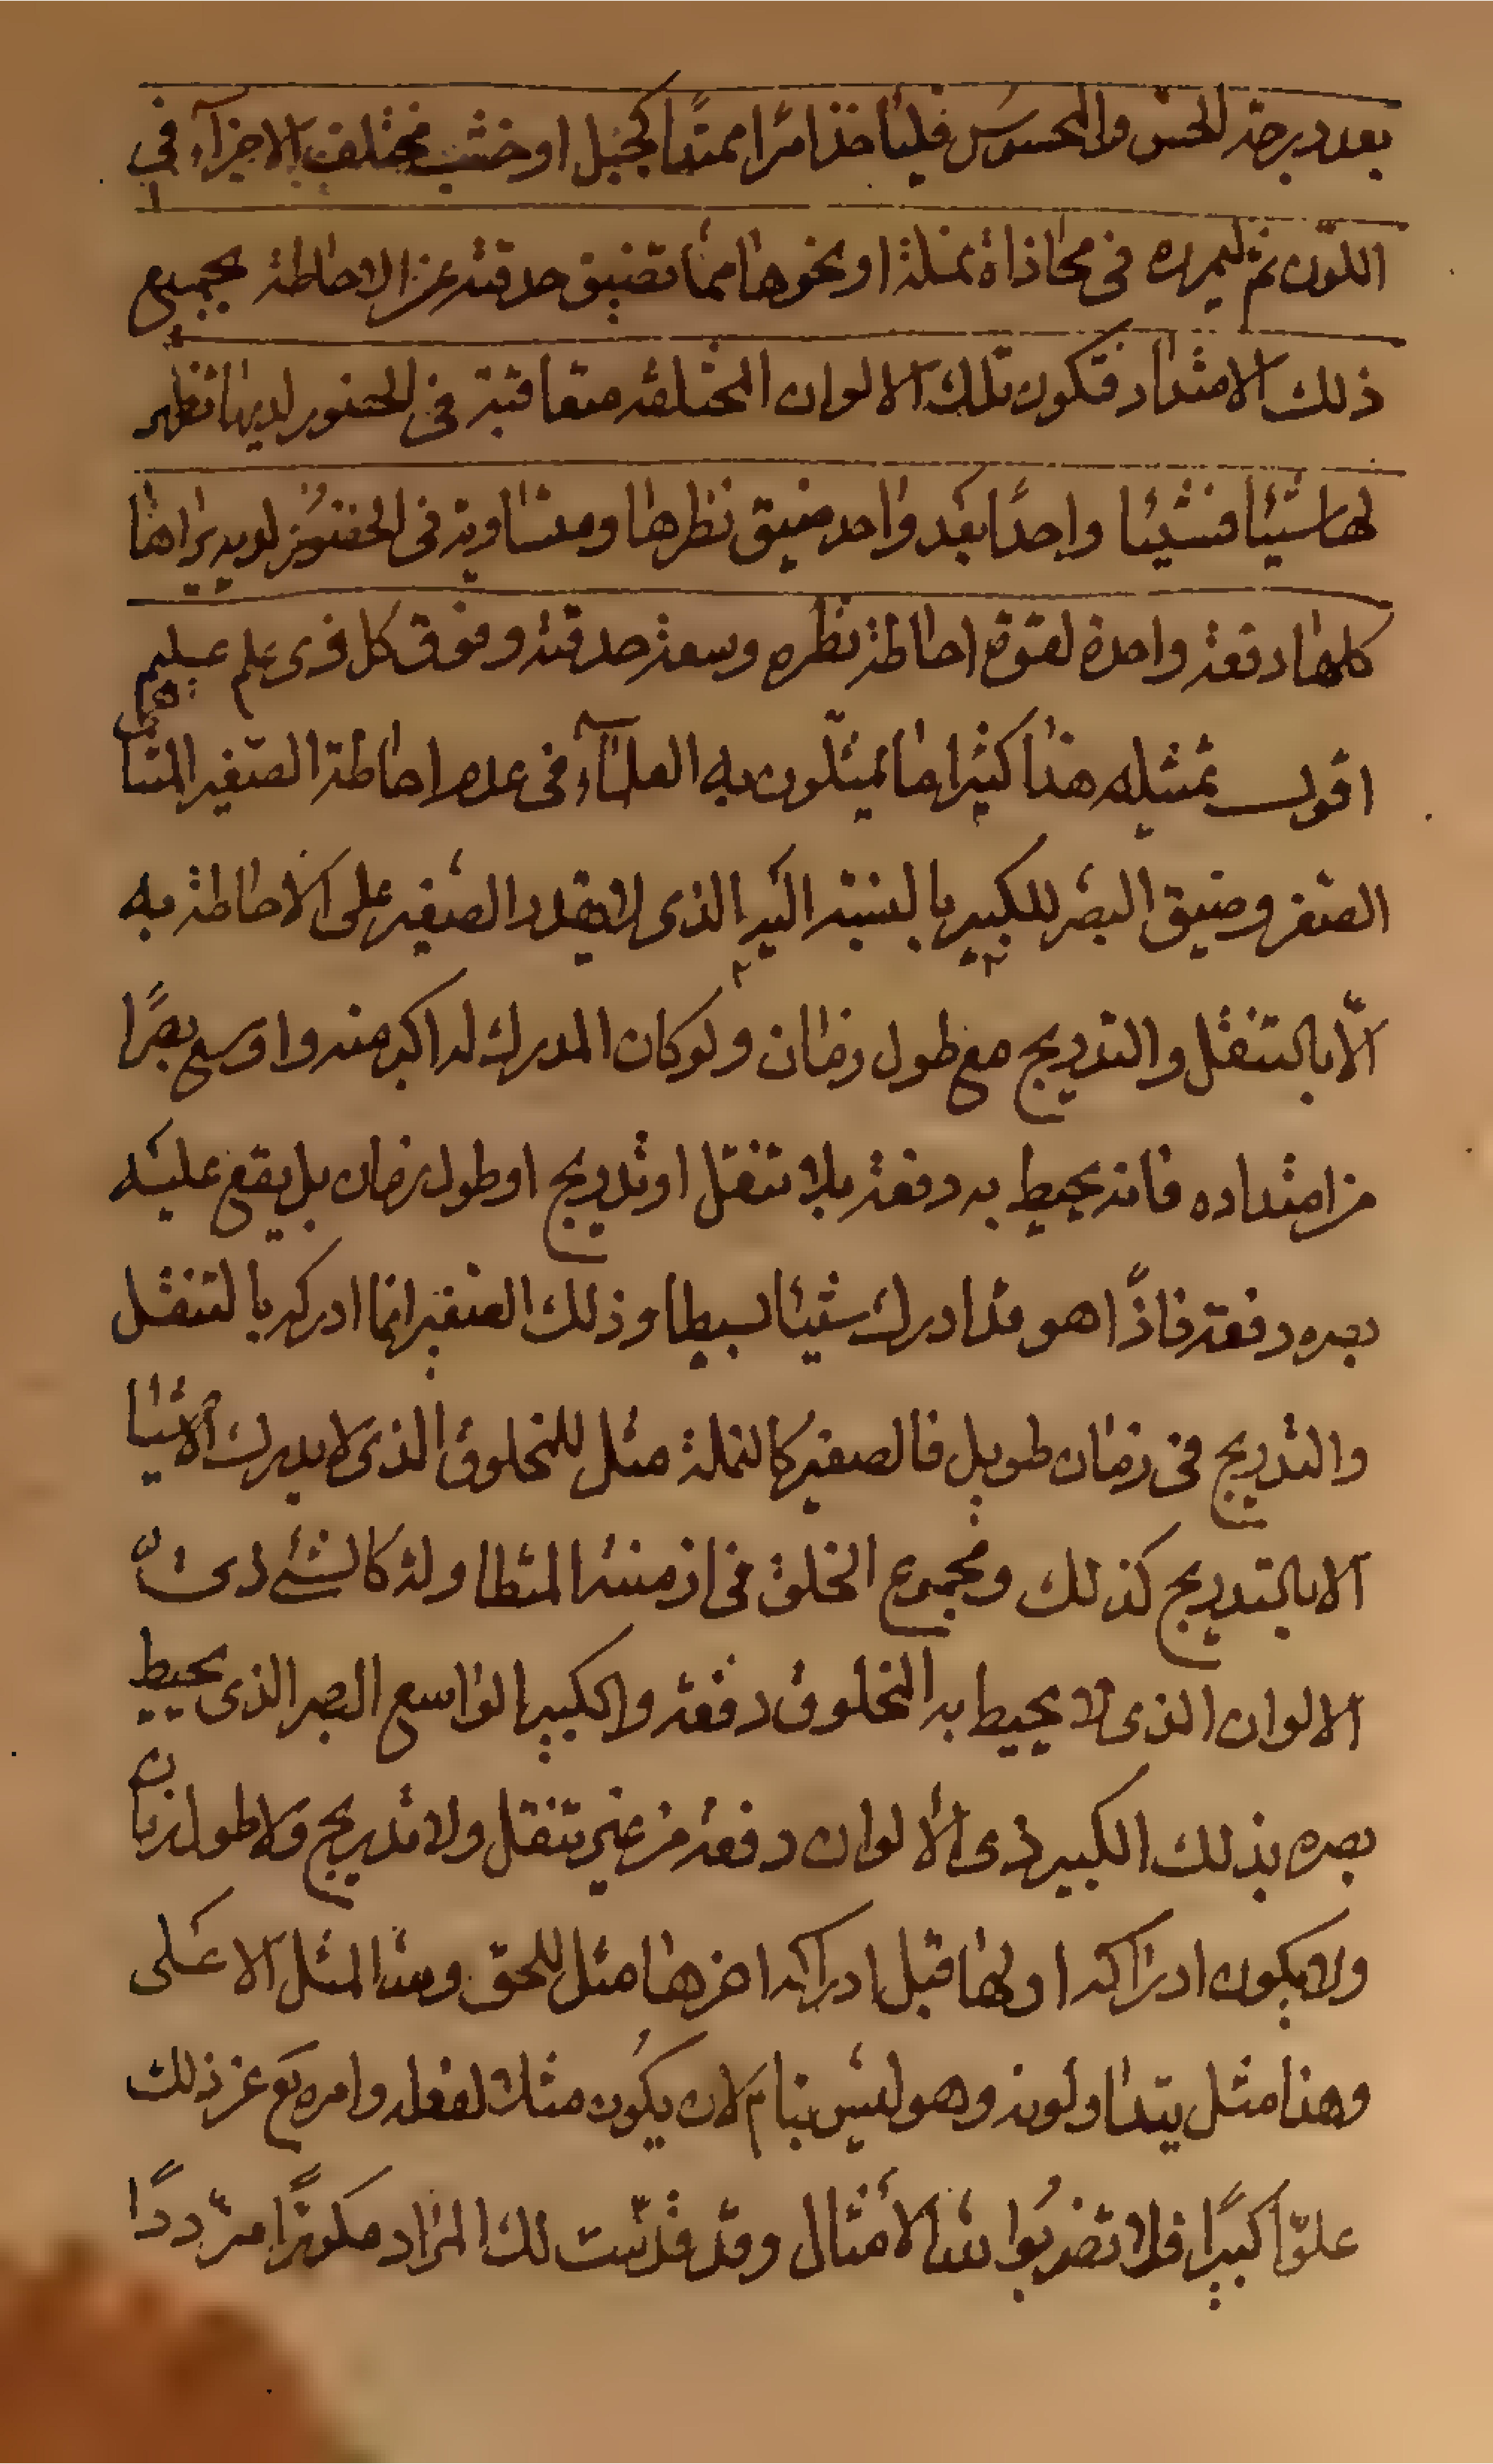 بعد درجة الحس والمحسوس فليأخذ امرا ممتدًا كحبل او خشب مختلف الاجزآء في
اللّون ثم ليمرره فى محاذاة نملة او نحوها مما تضيق حدقته عن الاحاطة بجميع
ذلك الامتداد فتكون تلك الالوان المختلفة متعاقبة فى الحضور لديها تظهر
لها شيئا فشيئا واحدًا بعد واحد لضيق نظرها ومتساوية فى الحضور لديه يراها
كلها دفعة واحدة لقوة احاطة نظره وسعة حدقته وفوق كل ذى علم عليم
اقول تمثيله هذا كثيرا ما يمثلون به العلمآء فى عدم احاطة الصغير المتناهى
الصغر وضيق البصر للكبير بالنسبة اليه الذى لا يقدر الصغير على الاحاطة به
الّا بالتنقل والتدريج مع طول زمان ولو كان المدرك له اكبر منه واوسع بصرًا
من امتداده فانه يحيط به دفعة بلا تنقل او تدريج او طول زمان بل يقع عليه
بصره دفعة فاذًا هو قد ادرك شيئا بسيطا وذلك الصغير انما ادركه بالتنقل
والتدريج فى زمان طويل فالصغير كالنملة مثل للمخلوق الذى لا يدرك الاشيا
الا بالتدريج كذلك ومجموع الخلق فى ازمنته المتطاولة كالشئ ذى
الالوان الذى لا يحيط به المخلوق دفعة والكبير الواسع البصر الذى يحيط
بصره بذلك الكبير ذى الالوان دفعة من غير تنقل ولا تدريج ولا طول زمان
ولا يكون ادراكه اولها قبل ادراكه اخرها مثل للحق ولله المثل الاعلى
وهذا مثل يتداولونه وهو ليس بتام لان يكون مثلا لفعله وامره تع عن ذلك
علوّا كبيرًا فلا تضربوا لله الامثال وقد قدّمت لك المراد مكررًا مرددًا